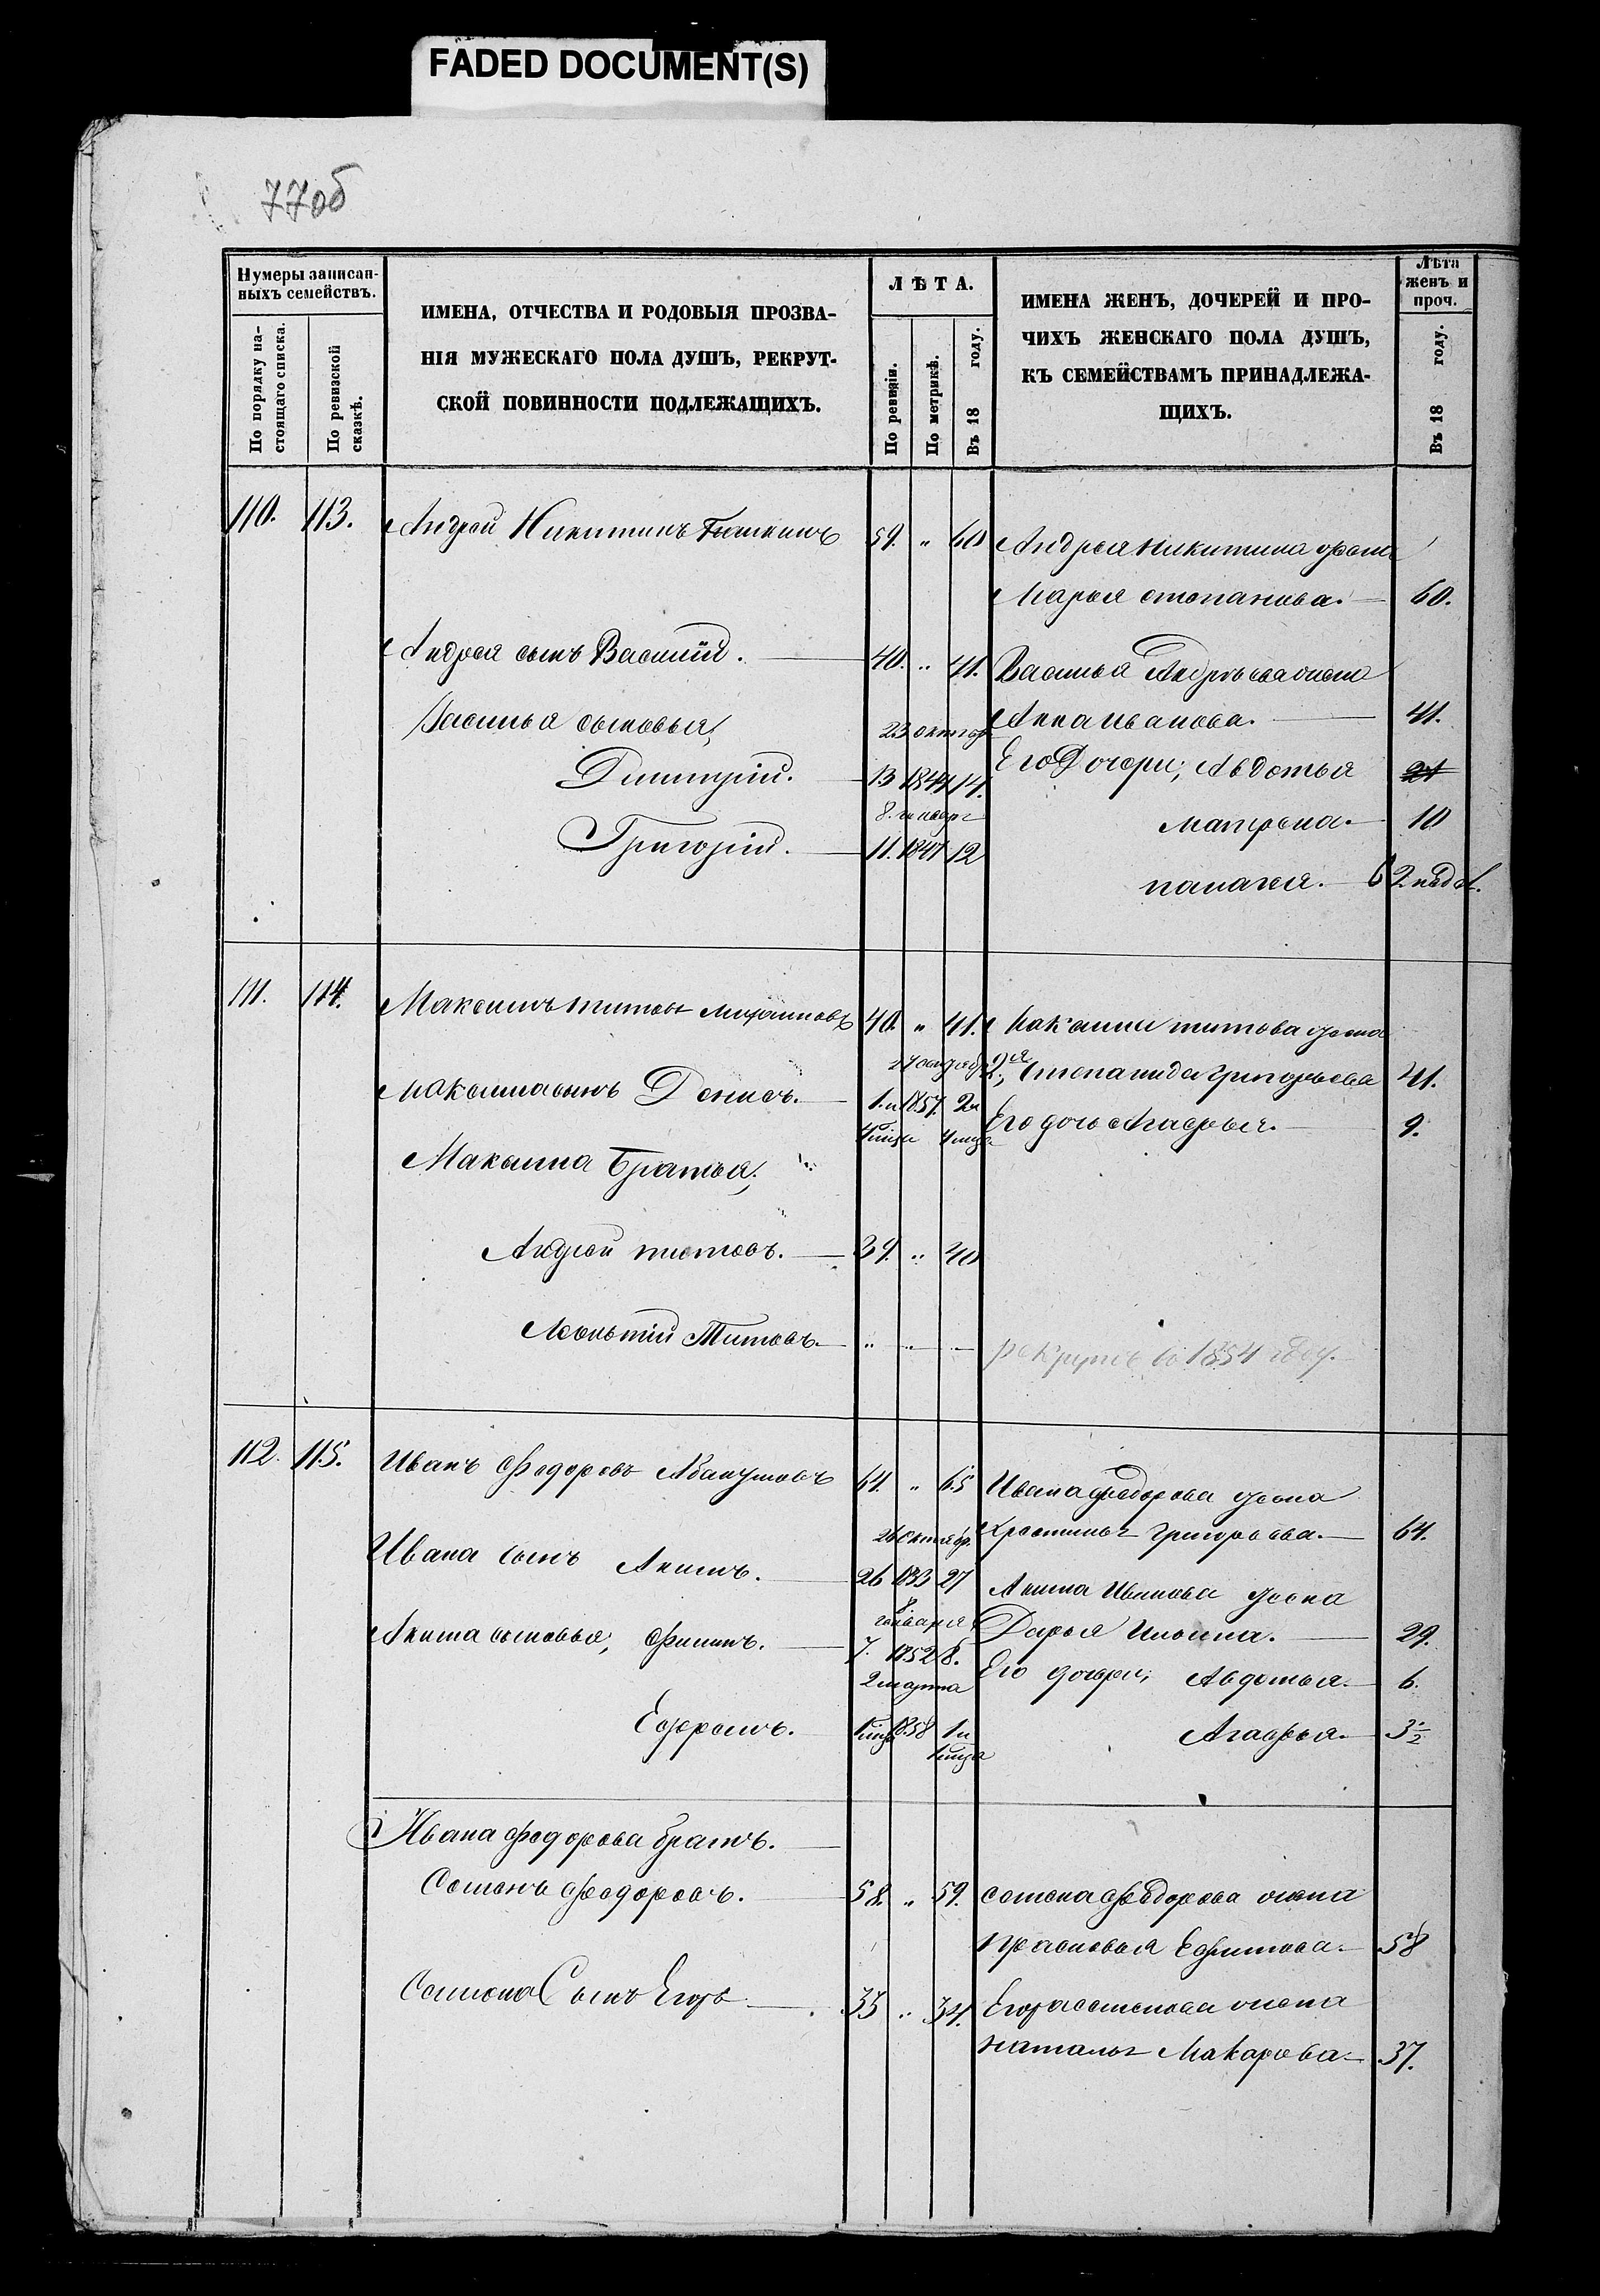 FADED DOCUMENT(S)
77об
Нумеры записан-
ныхъ семействъ.
По порядку на-
стоящаго списка.
По ревизской
сказкѣ.
ИМЕНА, ОТЧЕСТВА И РОДОВЫЯ ПРОЗВА-
НІЯ МУЖЕСКАГО ПОЛА ДУШЪ, РЕКРУТ-
СКОЙ ПОВИННОСТИ ПОДЛЕЖАЩИХЪ.
ЛѢТА.
По ревизіи.
По метрикѣ.
Въ 18 году.
ИМЕНА ЖЕНЪ, ДОЧЕРЕЙ И ПРО-
ЧИХЪ ЖЕНСКАГО ПОЛА ДУШЪ,
КЪ СЕМЕЙСТВАМЪ ПРИНАДЛЕЖА-
ЩИХЪ.
Лѣта
женъ и
проч.
Въ 18 году.
110. 113. Андрей Никитинъ 59. " 60 Андрея Никитина жена
Марья степанова. 60.
Андрея сынъ Василий. 40. " 41. Василья Андрѣева жена
Василья сыновья; 23 октяб Анна иванова. 41.
Дмитрій. 13 1844 14. Его Дочери; Авдотья 21
8. января Матрена. 10
Григорій. 11. 1847 12
палагея. 2. нѣд
111. 114. Максимъ титовъ 40. " 41. Максима титова жена
2я, степанида григорьева 41.
Максима сынъ Денисъ. 1. и 1857. 2 и Его дочь Агафья. 9.
4 мѣця 4 мѣця
Максима Братья;
Андрей титовъ. 39. " 40
Леонтій Титовъ. " " рекрутъ въ 1854 году.
112. 115. Иванъ Федоровъ Абакумовъ 64. " 65 Ивана федорова жена
26 октябр. Христинья григорьева. 64.
Ивана сынъ Акимъ. 26 1833 27 Акима Иванова жена
8 января Дарья Ильина. 29.
Акима сыновья, Филипъ. 7. 1852 8. Его дочери; Авдотья. 6.
2 марта
Ефремъ. 1 мѣця 1858 1 и Агафья. 3 ½
1 мѣця
Ивана федорова братъ.
Семенъ федоровъ. 58. " 59. семена федорова жена
прасковья Ефимова. 58
Семена Сынъ Егоръ 33 " 34. Егора семенова жена
наталья Макарова 37.